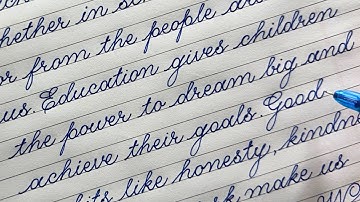 whether in
or from the people
us. Education gives children
the power to dream big and
achieve their goals. Good
like honesty,
make us